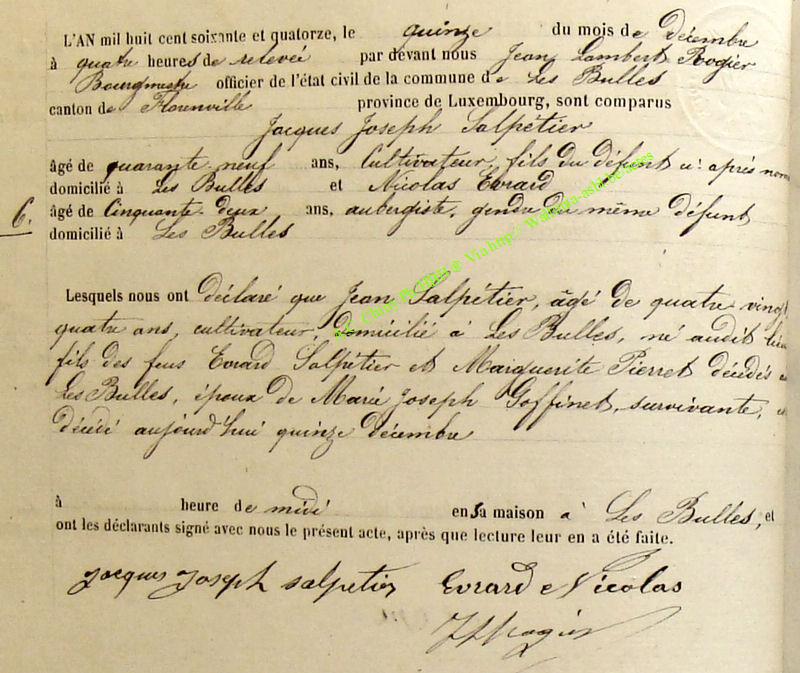 L'AN mil huit cent soixante et quatorze, le quinze du mois de décembre
à quatre heures de relevée par devant nous Jean Lambert Rogier
Bourgmestre officier de l'état civil de la commune de Les Bulles
canton de Florenville province de Luxembourg, sont comparus
Jacques Joseph Salpétier
âgé de quarante neuf ans, Cultivateur, fils du défunt ci après nom
domicilié à Les Bulles et Nicolas Evrard
6. âgé de Cinquante deux ans, aubergiste, gendre du même défunt
domicilié à Les Bulles
Lesquels nous ont déclaré que Jean Salpétier, âgé de quatre vingt
quatre ans, cultivateur, domicilié à Les Bulles, né audit lieu
fils des feus Evrard Salpétier et Marguerite Pierret décédés
Les Bulles, époux de Marie Joseph Goffinet, survivante,
décédé aujourd'hui quinze décembre
à heure de midi en sa maison à Les Bulles, et
ont les déclarants signé avec nous le présent acte, après que lecture leur en a été faite.
Jacques Joseph salpetier Evrard Nicolas
JLRogier